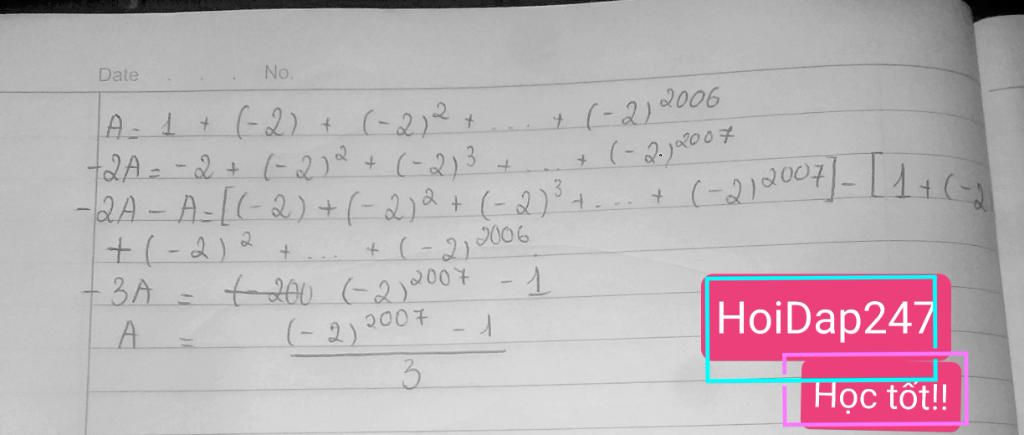 Date . . . No.
A = 1 + (-2) + (-2)² + .... + (-2)²⁰⁰⁶
-2A = -2 + (-2)² + (-2)³ + .... + (-2)²⁰⁰⁷
-2A - A = [(-2) + (-2)² + (-2)³ + .... + (-2)²⁰⁰⁷] - [1 + (-2
+ (-2)² + .... + (-2)²⁰⁰⁶
-3A = (-2)²⁰⁰⁷ - 1
A = (-2)²⁰⁰⁷ - 1
3
HoiDap247
Học tốt!!